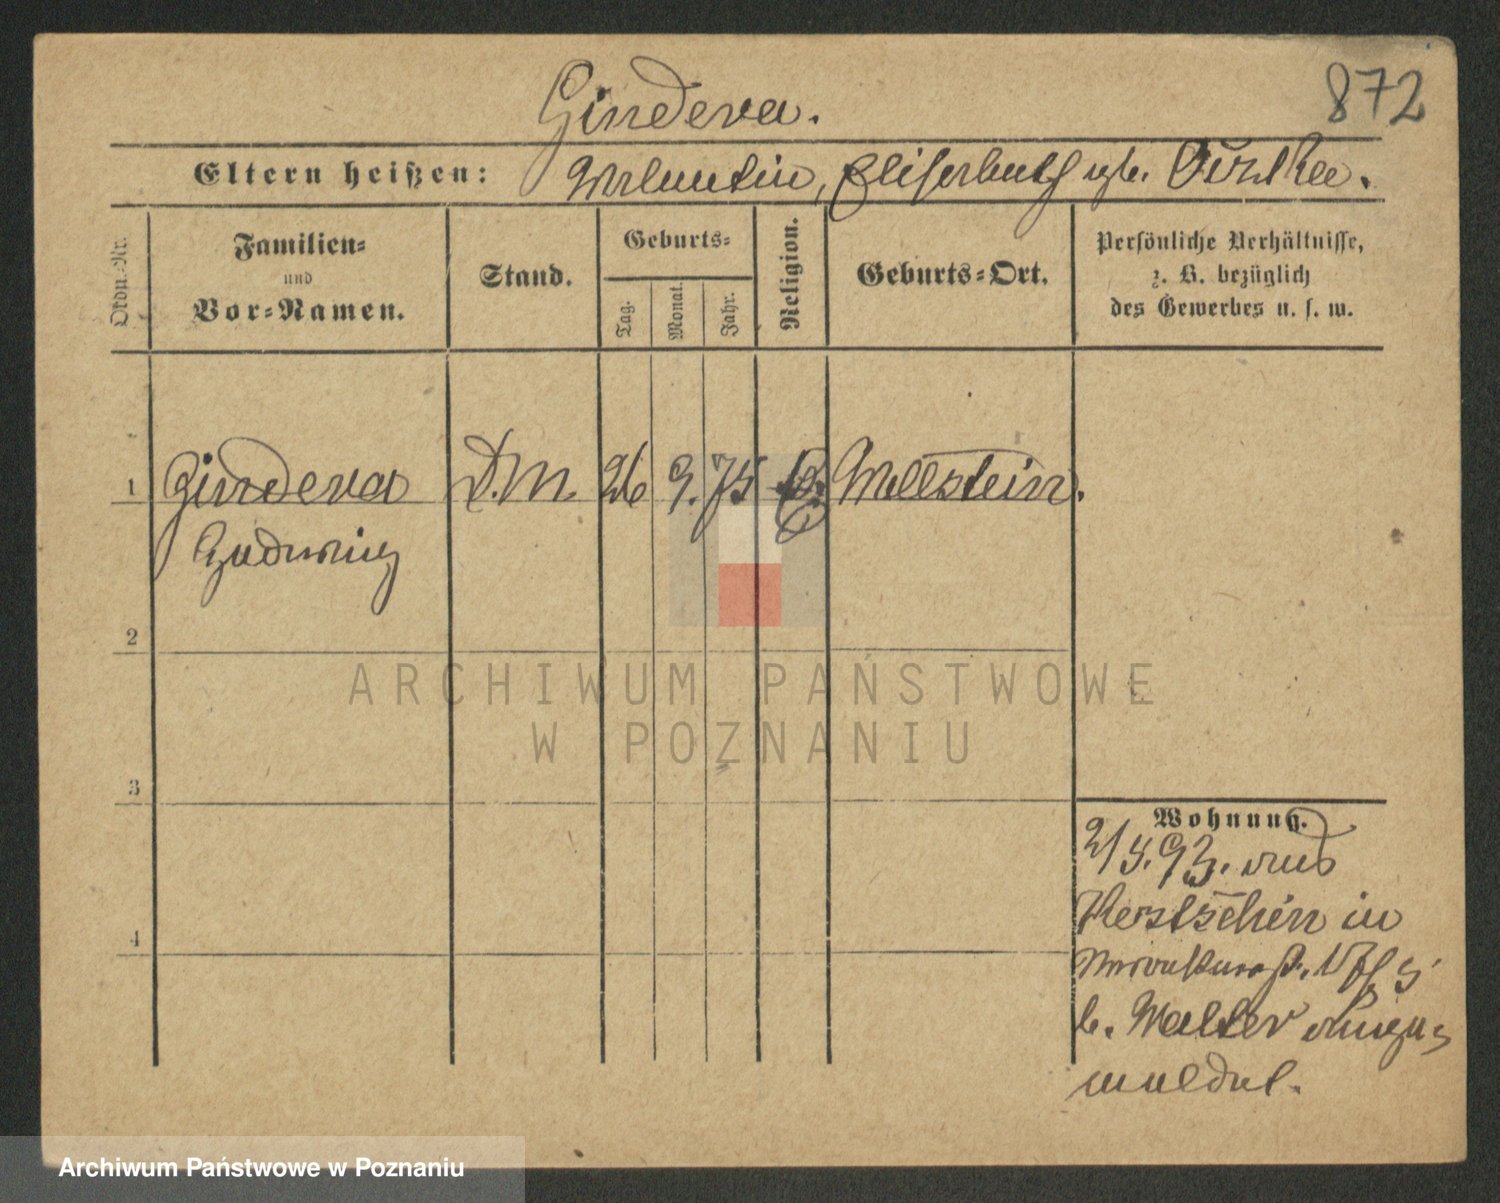 Gindera.
872
Eltern heißen: Valentin, Elisabeth geb.
Ordn.-Nr.
Familien-
und
Vor-Namen.
Stand.
Geburts-
Tag.
Monat.
Jahr.
Religion.
Geburts-Ort.
Persönliche Verhältnisse,
z. B. bezüglich
des Gewerbes u. s. w.
1 Gindera D.M. 26 9. 75 Wollstein.
Hedwig
2
3
4
Wohnung.
93. aus
in
b. Walter ange-
meldet.
ARCHIWUM PAŃSTWOWE
W POZNANIU
Archiwum Państwowe w Poznaniu